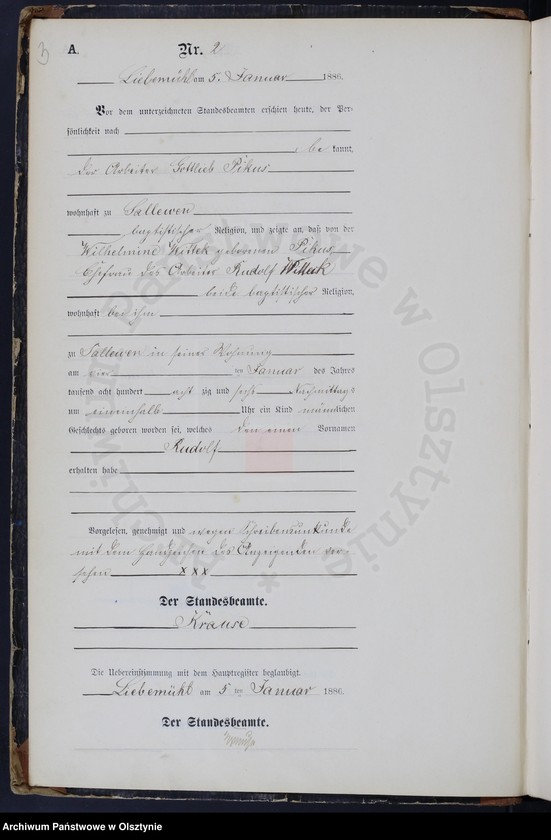 3
A.
Nr. 2
Liebemühl am 5. Januar 1886.
Vor dem unterzeichneten Standesbeamten erschien heute, der Per-
sönlichkeit nach
be kannt,
der Arbeiter Gottlieb Pikus
wohnhaft zu Sallewen
baptistischer Religion, und zeigte an, daß von der
Wilhelmine Wittek geborenen Pikus
Ehefrau des Arbeiter Rudolf Witteck
beide baptistischer Religion,
wohnhaft bei ihm
zu Sallewen in seiner Wohnung
am vier ten Januar des Jahres
tausend acht hundert acht zig und sechs Nachmittags
um einenhalb Uhr ein Kind männlichen
Geschlechts geboren worden sei, welches den einen Vornamen
Rudolf
erhalten habe
Vorgelesen, genehmigt und wegen Schreibensunkunde
mit dem Handzeichen des Anzeigenden ver-
sehen xxx
Der Standesbeamte.
Krause
Die Uebereinstimmung mit dem Hauptregister beglaubigt.
Liebemühl am 5 ten Januar 1886.
Der Standesbeamte.
Archiwum Państwowe w Olsztynie
Archiwum Państwowe w Olsztynie